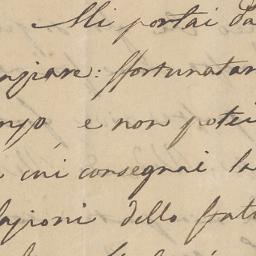 Mi portai da
ngiare: sfortunatam
npo, e non potei
a cui consegnai la
lazioni dello frat